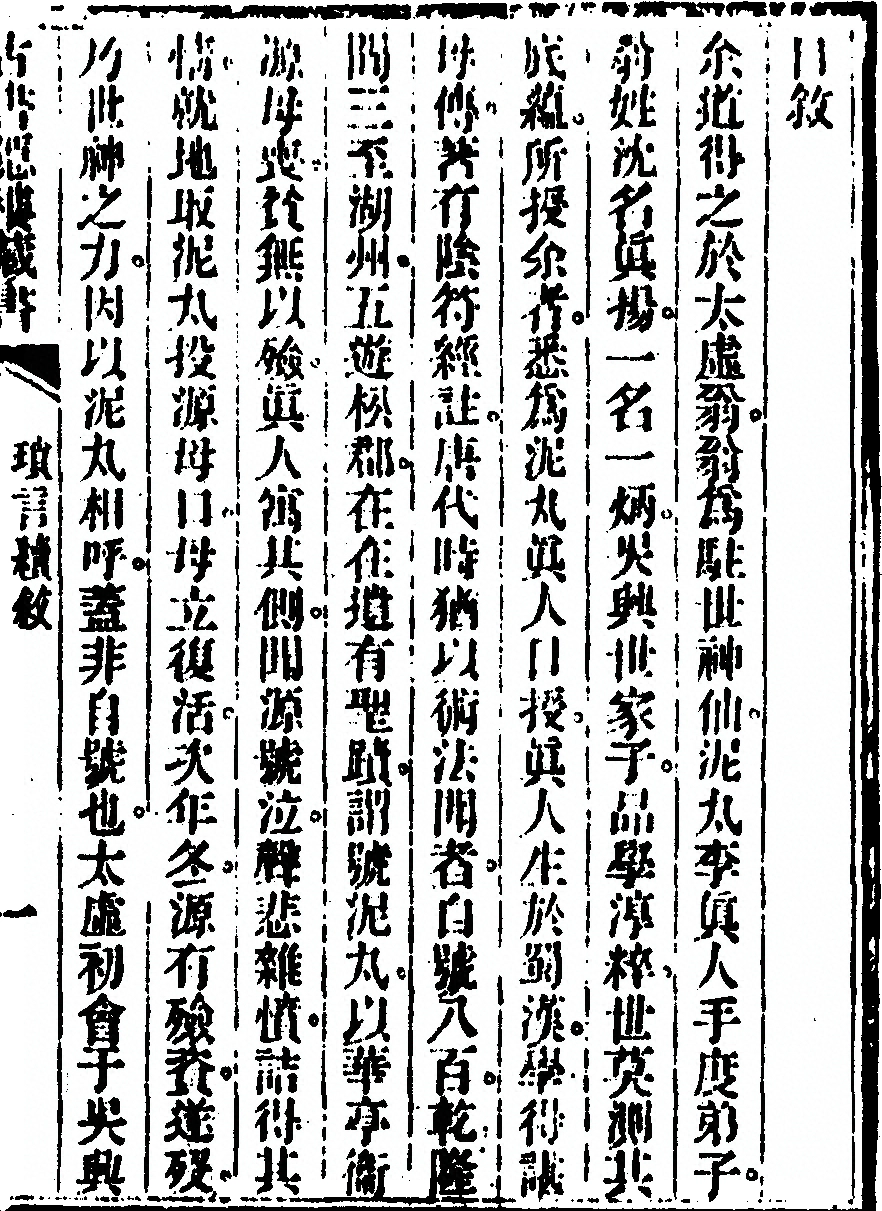 自敘
余道得之於太虛翁翁為駐世神仙泥丸李眞人手度弟子
翁姓沈名眞揚一名一炳吳興世家子品學淳粹世莫測其
底蘊所授余者悉為泥丸眞人口授眞人生於蜀漢學得訣
母傳著有陰符經註唐代時猶以術法聞者自號八百乾隆
間三至湖州五遊松郡在在遺有聖蹟謂號泥丸以華亭衞
源母喪貧無以殮眞人寓其側聞源號泣聲悲雜憤詰得其
情就地取泥丸投源母口母立復活次年冬源有殮資遂歿
乃世神之力因以泥丸相呼蓋非自號也太虛初會于吳興
古書隱樓藏書
瑣言續敘
一